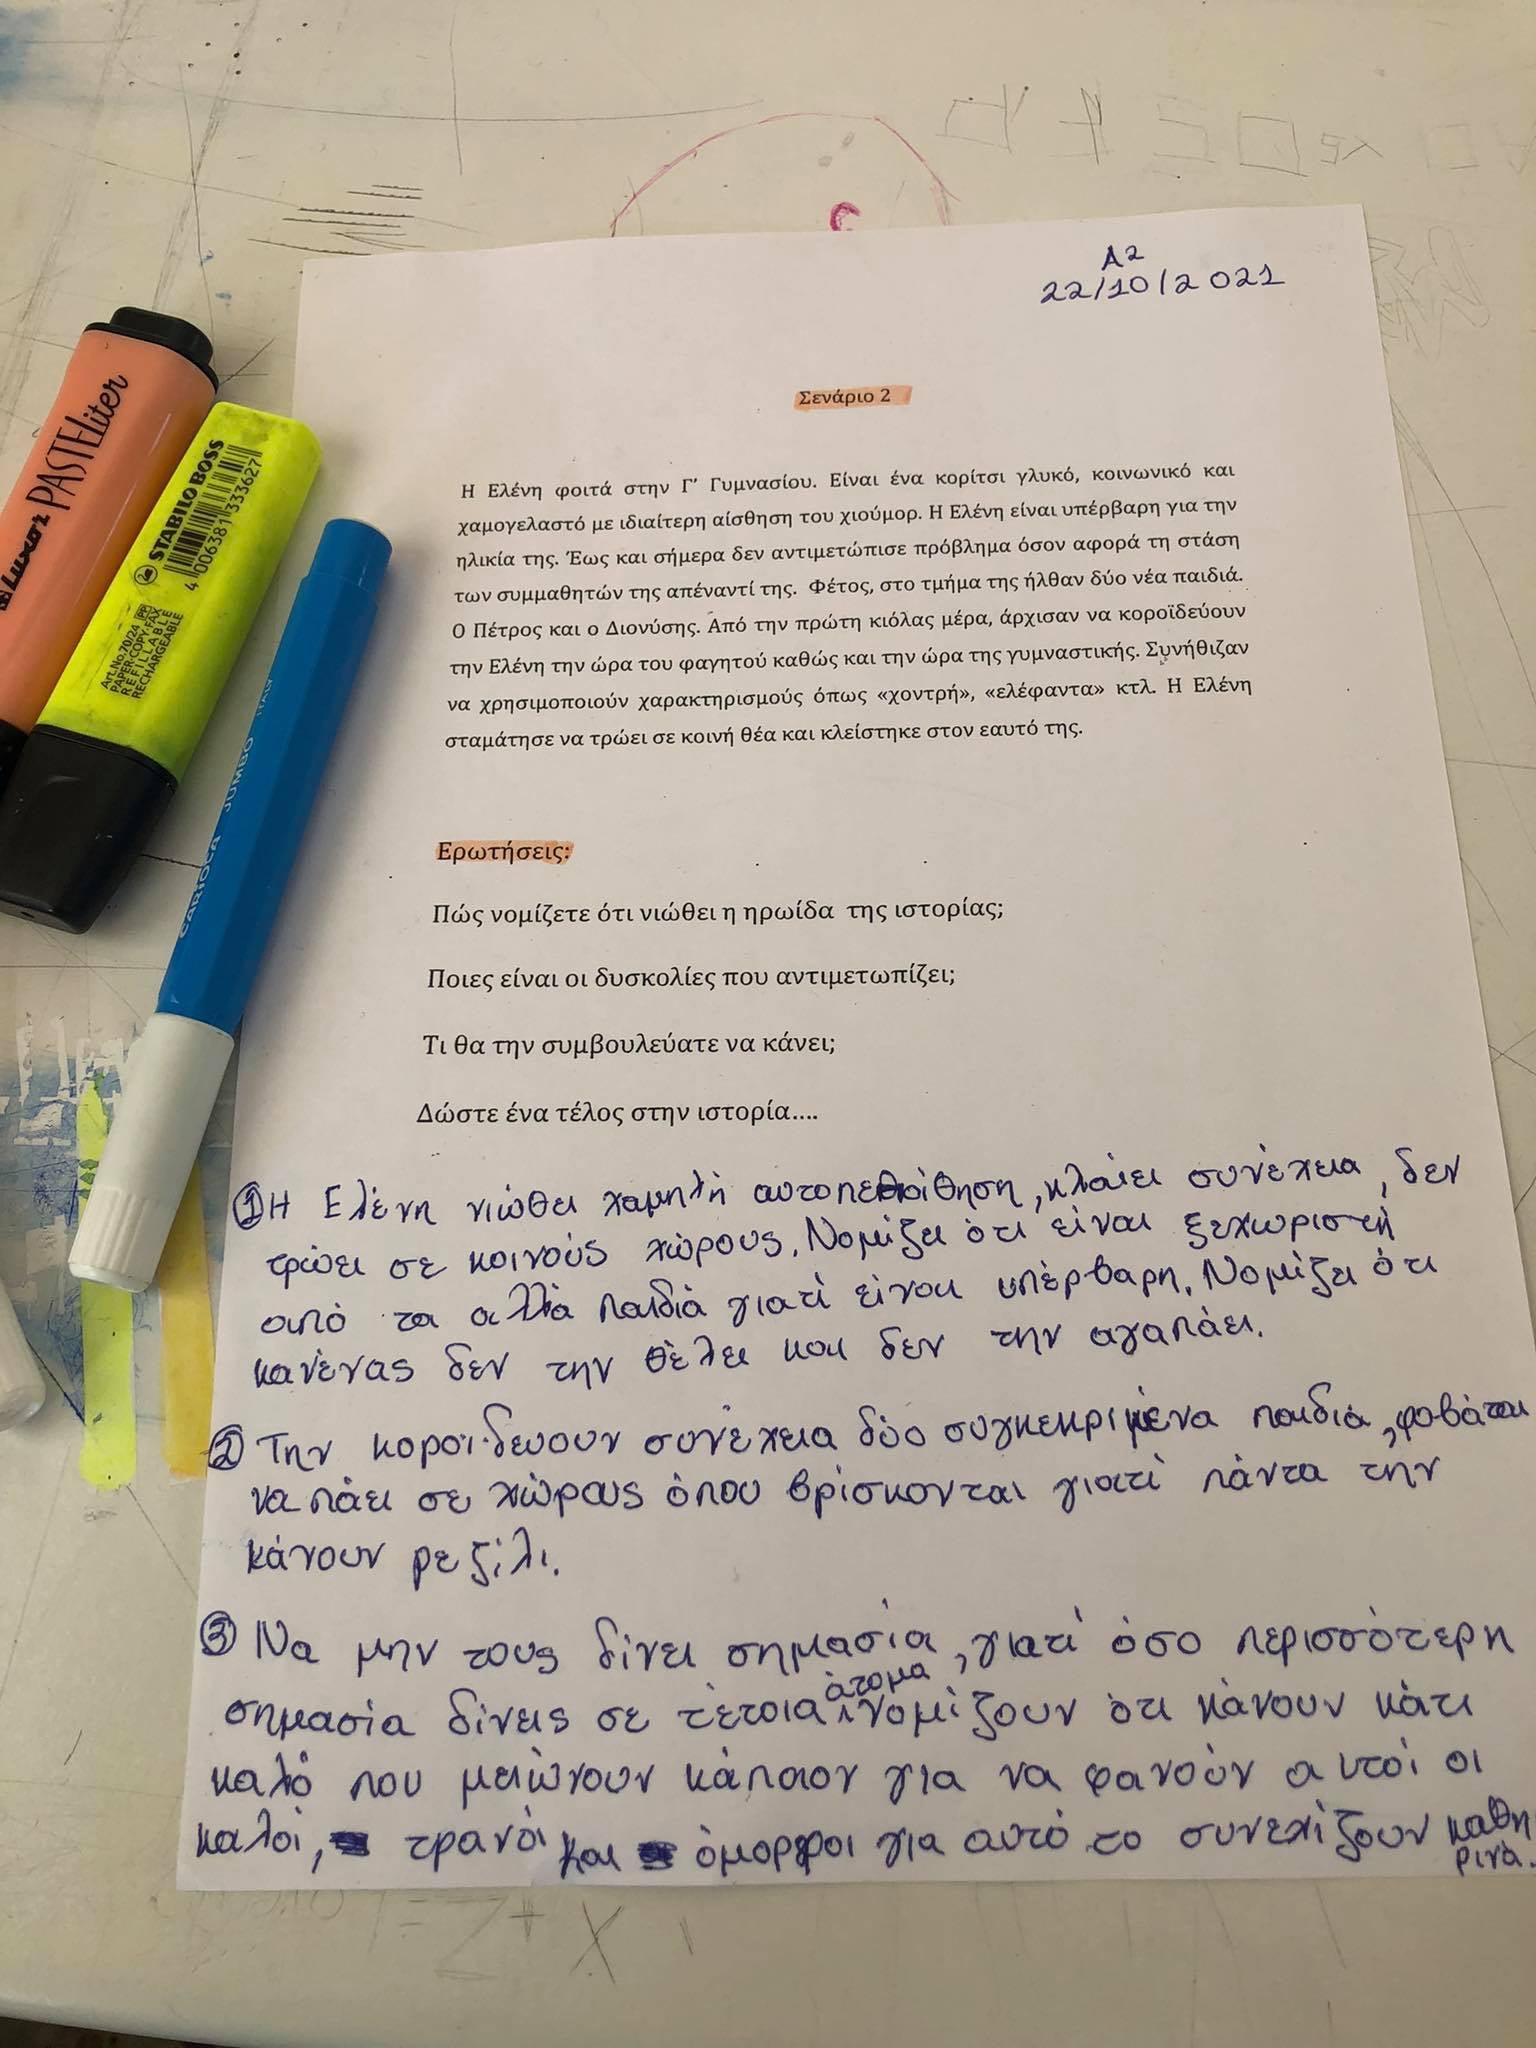 A2
22/10/2021
Σενάριο 2
Η Ελένη φοιτά στην Γ' Γυμνασίου. Είναι ένα κορίτσι γλυκό, κοινωνικό και
χαμογελαστό με ιδιαίτερη αίσθηση του χιούμορ. Η Ελένη είναι υπέρβαρη για την
ηλικία της. Έως και σήμερα δεν αντιμετώπισε πρόβλημα όσον αφορά τη στάση
των συμμαθητών της απέναντί της. Φέτος, στο τμήμα της ήλθαν δύο νέα παιδιά.
Ο Πέτρος και ο Διονύσης. Από την πρώτη κιόλας μέρα, άρχισαν να κοροϊδεύουν
την Ελένη την ώρα του φαγητού καθώς και την ώρα της γυμναστικής. Συνήθιζαν
να χρησιμοποιούν χαρακτηρισμούς όπως «χοντρή», «ελέφαντα» κτλ. Η Ελένη
σταμάτησε να τρώει σε κοινή θέα και κλείστηκε στον εαυτό της.
Ερωτήσεις:
Πώς νομίζετε ότι νιώθει η ηρωίδα της ιστορίας;
Ποιες είναι οι δυσκολίες που αντιμετωπίζει;
Τι θα την συμβουλεύατε να κάνει;
Δώστε ένα τέλος στην ιστορία....
① Η Ελένη νιώθει χαμηλή αυτοπεποίθηση, κλαίει συνέχεια, δεν
τρώει σε κοινούς χώρους. Νομίζει ότι είναι ξεχωριστή
από τα αλλά παιδιά γιατί είναι υπέρβαρη. Νομίζει ότι
κανένας δεν την θέλει και δεν την αγαπάει.
② Την κοροϊδεύουν συνέχεια δύο συγκεκριμένα παιδιά, φοβάται
να πάει σε χώρους όπου βρίσκονται γιατί πάντα την
κάνουν ρεζίλι.
③ Να μην τους δίνει σημασία, γιατί όσο περισσότερη
σημασία δίνεις σε τέτοια άτομα νομίζουν ότι κάνουν κάτι
καλό που μειώνουν κάποιον για να φανούν αυτοί οι
καλοί, τρανοί και όμορφοι για αυτό το συνεχίζουν καθη
ρινά.
Luxor PASTELliter
STABILO BOSS
4 006381 333627
Art.No.70/24
PAPER-COPY-FAX
REFILLABLE
RECHARGEABLE
CARIOCA JUMBO ITALY